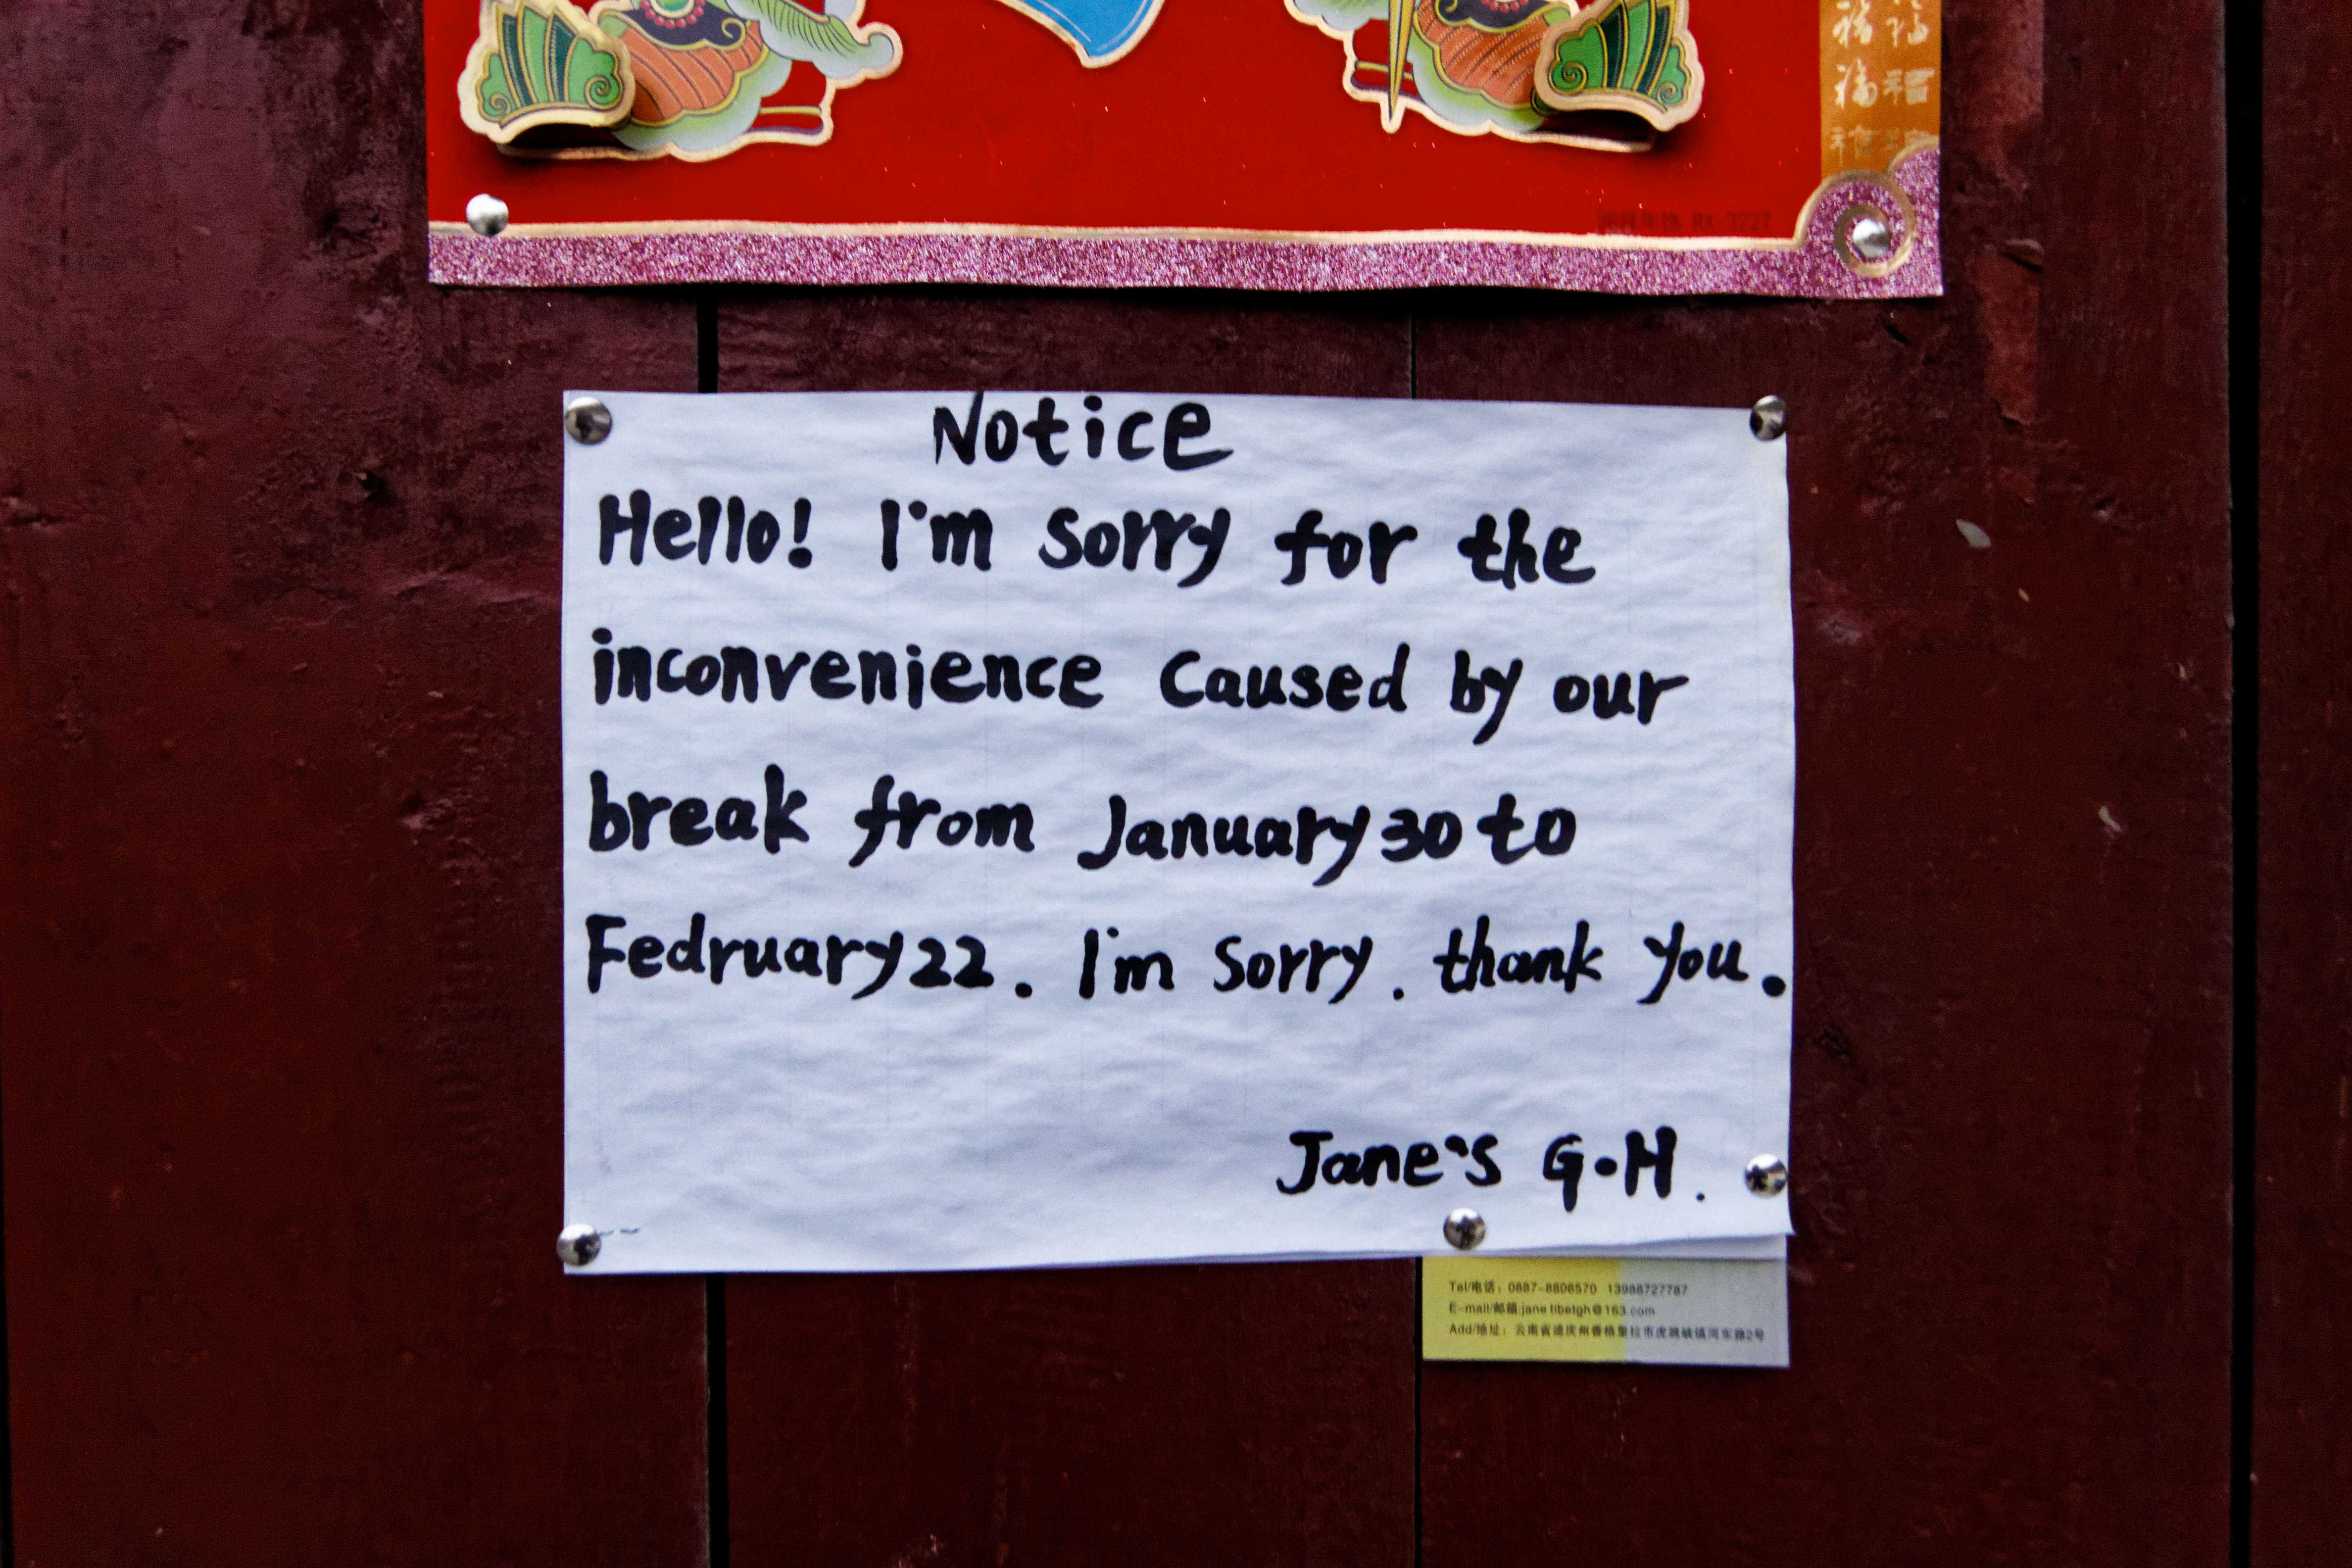 福 福
福 福
福
RX-3227
Notice
Hello! I'm sorry for the
inconvenience caused by our
break from January 30 to
Fedruary 22. I'm sorry. thank you.
Jane's G·H.
Tel/电话：0887-8806570 13988727787
E-mail/邮箱:janetibetgh@163.com
Add/地址：云南省迪庆州香格里拉市虎跳峡镇河东路2号